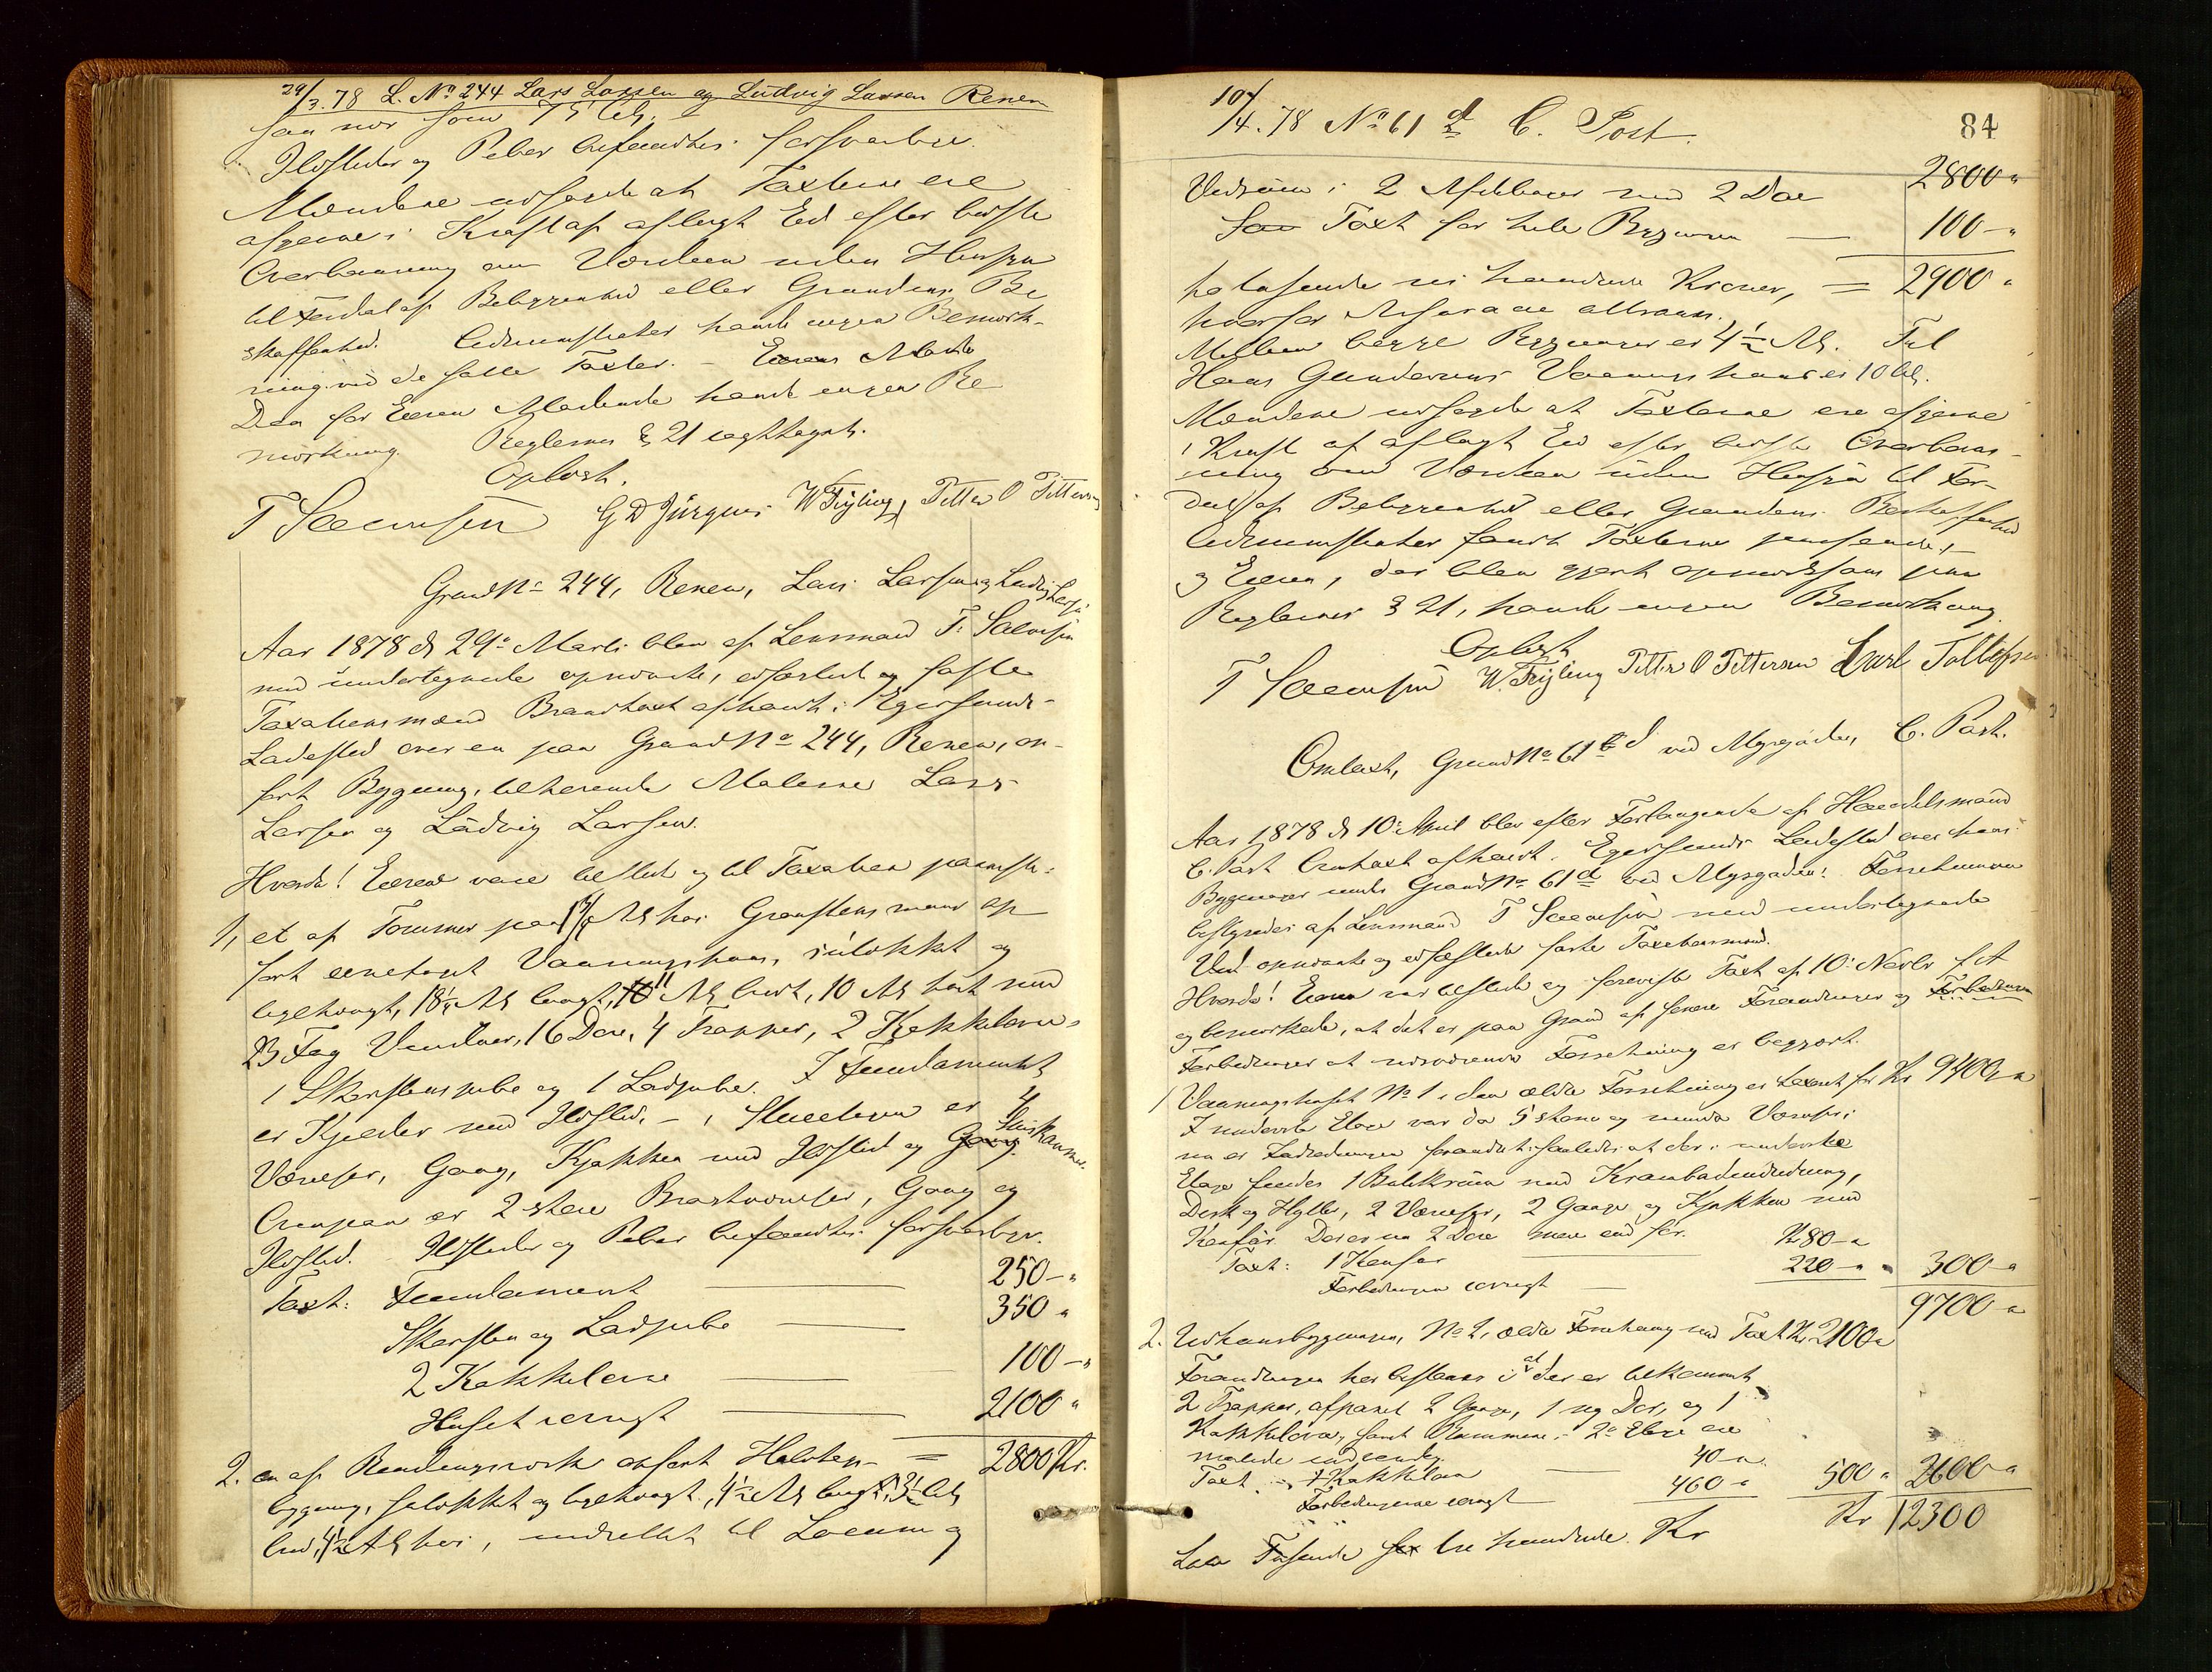 29/3.78 L. No 244 Lars Larsen og Ludvig Larsen Renen
som 7 5 Al.
Ildsteder og Peber befandtes forsvarlige.
Mændene udsagde at Taxterne ere
afgivne i Kraft af aflagt Eed efter bedste
Overbevisning om Værdien uden Hensyn
til Fordel af Beliggenhed eller Grundens Be
skaffenhed. Lednumsmanden havde ingen Bemærk-
ning ved de satte Taxter. –
Den for Eieren Mødende havde ingen Be
mærkning. Reglernes § 21 iagttaget.
Oplæst.
T Salvesen G D Jürgens W Feyling, Petter O Pettersen
Grund No 244, Renen, Lars Larsen og Ludvig Larsen
Aar 1878 d 29e Marts blev af Lensmand T. Salvesen
med undertegnede opnævnte, edfæstede og faste
Taxationsmænd Brandtaxt afholdt i Egersunds
Ladested over en paa Grund No 244, Renen, op-
ført Bygning, tilhørende Malerne Lars
Larsen og Ludvig Larsen.
Hvorda! Eierne vare tilstede og til Taxation paavistes:
1, et af Tømmer paa 1 1/2 Al høi Graastensmuur op
ført eenetages Vaaningshuus, suloklæt og
teglhængt, 18 1/2 Al langt, 11 Al bredt, 10 Al høit med
23 Fag Vinduer, 16 Døre, 4 Trapper, 2 Kakkelovne,
1 Skorstenspibe og 1 Ladpibe. I Fundamentet
er Kjelder med Ildsted, – i Stueetagen er 4
Værelser, Gang, Kjøkken med Ildsted og Spiskammer.
Ovenpaa er 2 større Brastværelser, Gang og
Ildsted. Ildsteder og Peber befandtes forsvarlige.
Taxt: Fundament — 250 –"
Skorsten og Ladpibe — 350 "
2 Kakkelovne — 100 –"
Huset iøvrigt — 2100 "
= 2800 Kr.
2. en af Bindingsværk opført Halvtag-
bygning, suloklæt og teglhængt, 4 1/2 Al langt, 3 1/2 Al
bred, 4 1/2 Al høi, indrettet til Locum og
10/4.78 No 61 d C. Post. 84
2800 "
Vedrum i 2 Afdelinger med 2 Døre
Taxt for hele Bygningen — 100 –"
to tusende ni hundrede Kroner, = 2900 "
hvorfor Assurance attraaes.
Mellem begge Bygninger er 4 1/2 Al. Til
Hans Gundersens Vaaningshuus er 10 Al.
Mændene udsagde at Taxterne ere afgivne
i Kraft af aflagt Eed efter bedste Overbevis-
ning om Værdien uden Hensyn til For-
del af Beliggenhed eller Grundens Beskaffenhed
fandt Taxterne passende,
og Eieren, der blev gjort opmærksom paa
Reglernes § 21, havde ingen Bemærkning.
Oplæst
T Salvesen W. Feyling Petter O Pettersen Carl Tollefsen
Omtaxt, Grund No 61 d ved Myrgaden, C. Post.
Aar 1878 d 10e April blev efter Forlangende af Handelsmand
C. Post Omtaxt afholdt i Egersunds Ladested over hans
Bygninger under Grund No 61 d ved Myrgaden. Forretningen
bestyredes af Lensmand T Salvesen med undertegnede
opnævnte og edfæstede faste Taxationsmænd.
Hvorda! Eieren var tilstede og foreviste Taxt af 10e Novbr f. A
og bemærkede, at det er paa Grund af senere Forandringer og
Forbedringer at nærværende Forretning er begjært.
1, Vaaningshuset No 1 i den ældre Forretning er taxeret for Kr 9400 "
I underste Etage var da 5 større og mindre Værelser;
nu er Indredningen forandret saaledes at der i underste
Etage findes 1 Butikrum med Krambodindredning,
Disk og Hylder, 2 Værelser, 2 Gange og Kjøkken med
Komfur. Der er nu 2 Døre mere end før.
Taxt: 1 Komfur — 80 –"
Forbedringen iøvrigt — 220 –" 300 –"
9700 –"
2. Udhuusbygningen, No 2, ældre Forretning med Taxt Kr 2100 "
Forandringen her bestaaer i at der er tilkommet
2 Trapper, afpanet 2 Gange, 1 ny Dør, og 1
Kakkelovn, samt Rummene i 2e Etage ere
malede indvendig.
Taxt: 1 Kakkelovn — 40 –"
Forbedringerne iøvrigt — 460 –" 500 " 2600 –"
Kr 12300
Tusende tre hundrede Kr